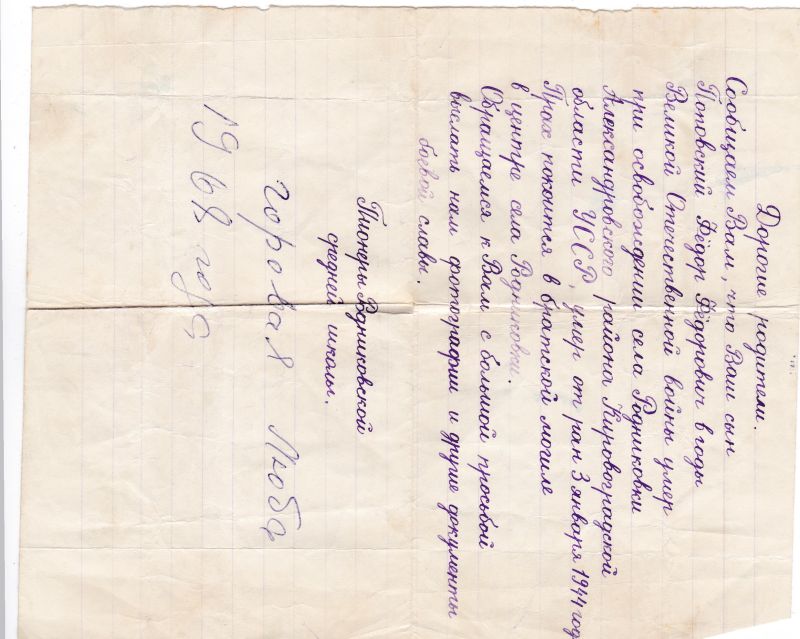 Дорогие родители.
Сообщаем Вам, что Ваш сын
Поповский Фёдор Фёдорович в годы
Великой Отечественной войны умер
при освобождении села Родниковки
Александровского района Кировоградской
области УССР, умер от ран 3 января 1944 год
Прах покоится в братской могиле
в центре села Родниковки.
Обращаемся к Вам с большой просьбой
выслать нам фотографии и другие документы
боевой славы.
Пионеры Родниковской
средней школы.
Горовая Люба
1968 года